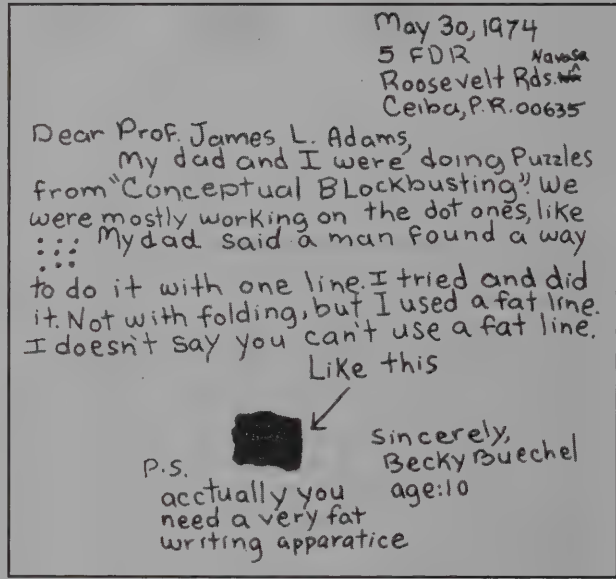 May 30, 1974
5 FDR Navasa
Roosevelt Rds. ^
Ceiba, P.R. 00635
Dear Prof. James L. Adams,
My dad and I were doing Puzzles
from "Conceptual BLockbusting". We
were mostly working on the dot ones, like
My dad said a man found a way
to do it with one line. I tried and did
it. Not with folding, but I used a fat line.
I doesn't say you can't use a fat line.
Like this
Sincerely,
Becky Buechel
age: 10
P.S.
acctually you
need a very fat
writing apparatice